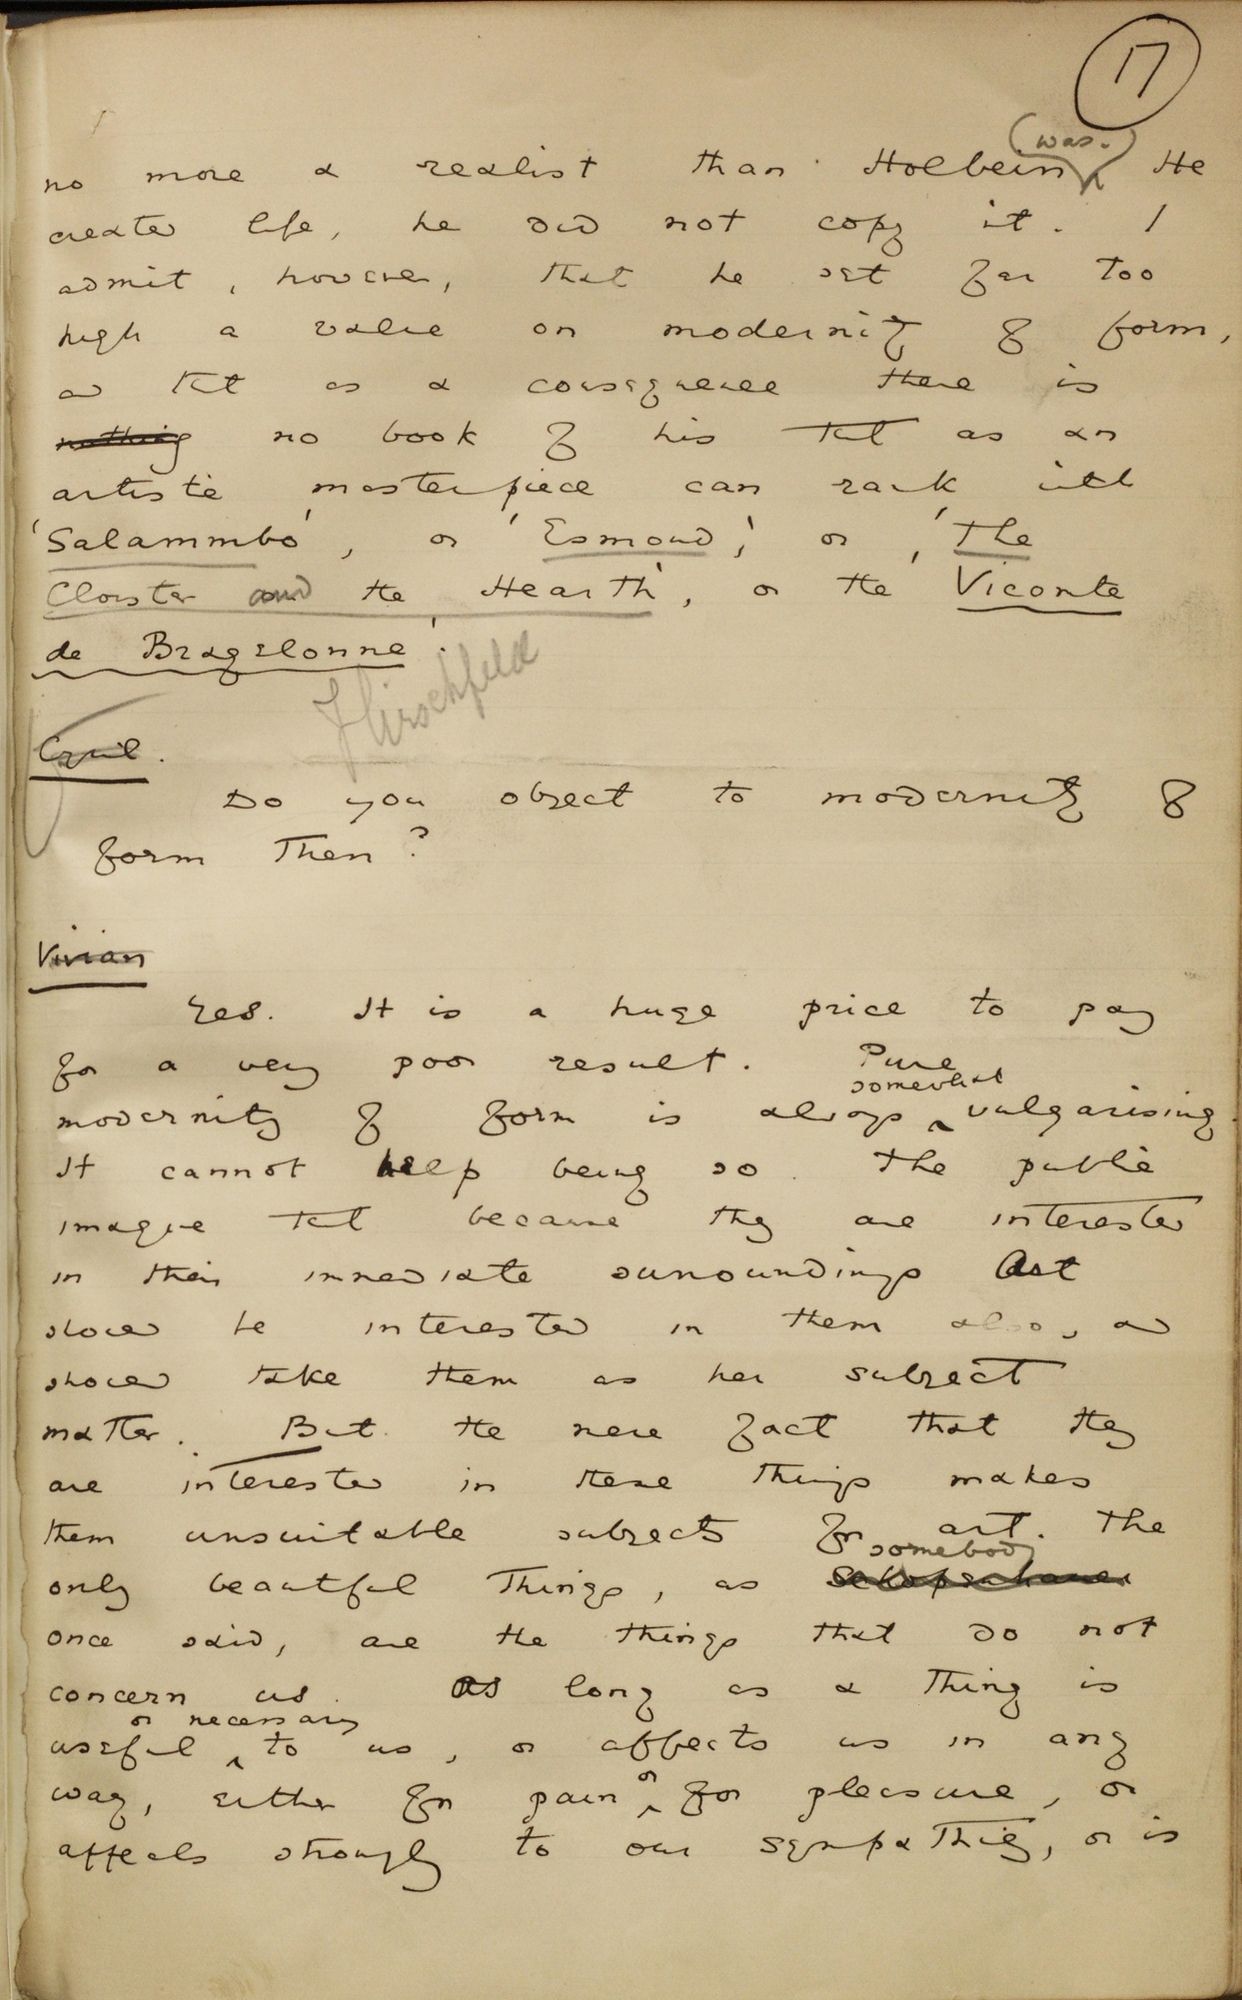 17
no more a realist than Holbein (was.) He
created life, he did not copy it. I
admit, however, that he set far too
high a value on modernity of form,
and that as a consequence there is
nothing no book of his that as an
artistic masterpiece can rank with
'Salammbo', or 'Esmond,' or 'The
Cloister and the Hearth', or the 'Viconte
de Bragelonne'.
J Hirschfeld
Cyril.
Do you object to modernity of
form then?
Vivian
Yes. It is a huge price to pay
for a very poor result. Pure
somewhat
modernity of form is always ‸ vulgarising.
It cannot help being so. The public
imagine that because they are interested
in their immediate surroundings Art
should be interested in them also, and
should take them as her subject
matter. But the mere fact that they
are interested in these things makes
them unsuitable subjects for art. The
somebody
only beautiful things, as Schopenhauer
once said, are the things that do not
concern us. As long as a thing is
or necessary
useful ‸ to us, or affects us in any
way, either for pain ‸ or for pleasure, or
appeals strongly to our sympathies, or is